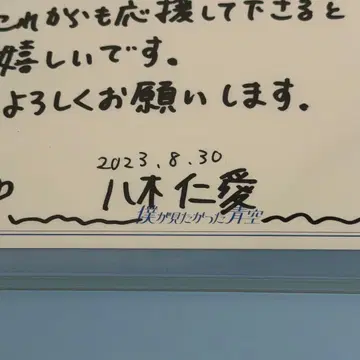 これからも応援して下さると
嬉しいです。
よろしくお願いします。
2023.8.30
八木仁愛
僕が見たかった青空